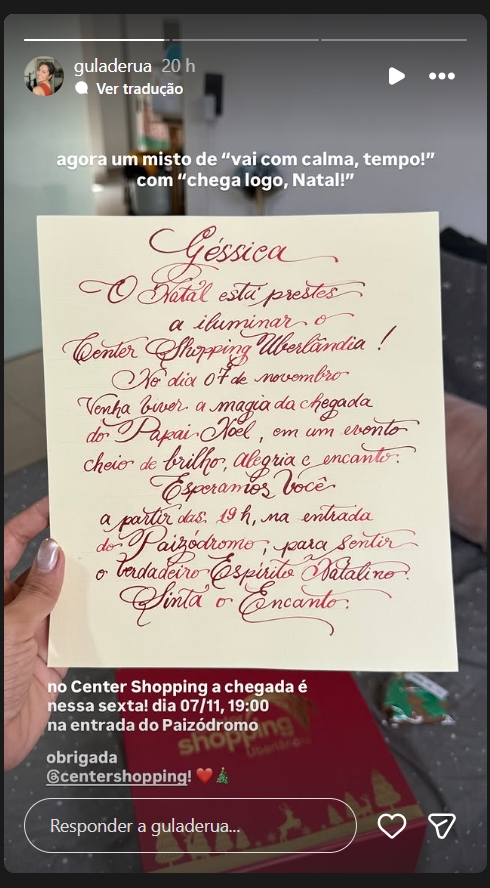 guladerua 20 h
Ver tradução
agora um misto de “vai com calma, tempo!”
com “chega logo, Natal!”
Géssica
O Natal está prestes
a iluminar o
Center Shopping Uberlândia !
No dia 07 de novembro
Venha viver a magia da chegada
do Papai Noel, em um evento
cheio de brilho, alegria e encanto.
Esperamos Você
a partir das. 19 h, na entrada
do Paizódromo, para sentir
o verdadeiro Espírito Natalino.
Sinta o Encanto.
no Center Shopping a chegada é
nessa sexta! dia 07/11, 19:00
na entrada do Paizódromo
shopping
Uberlândia
obrigada
@centershopping! ❤️🎄
Responder a guladerua...